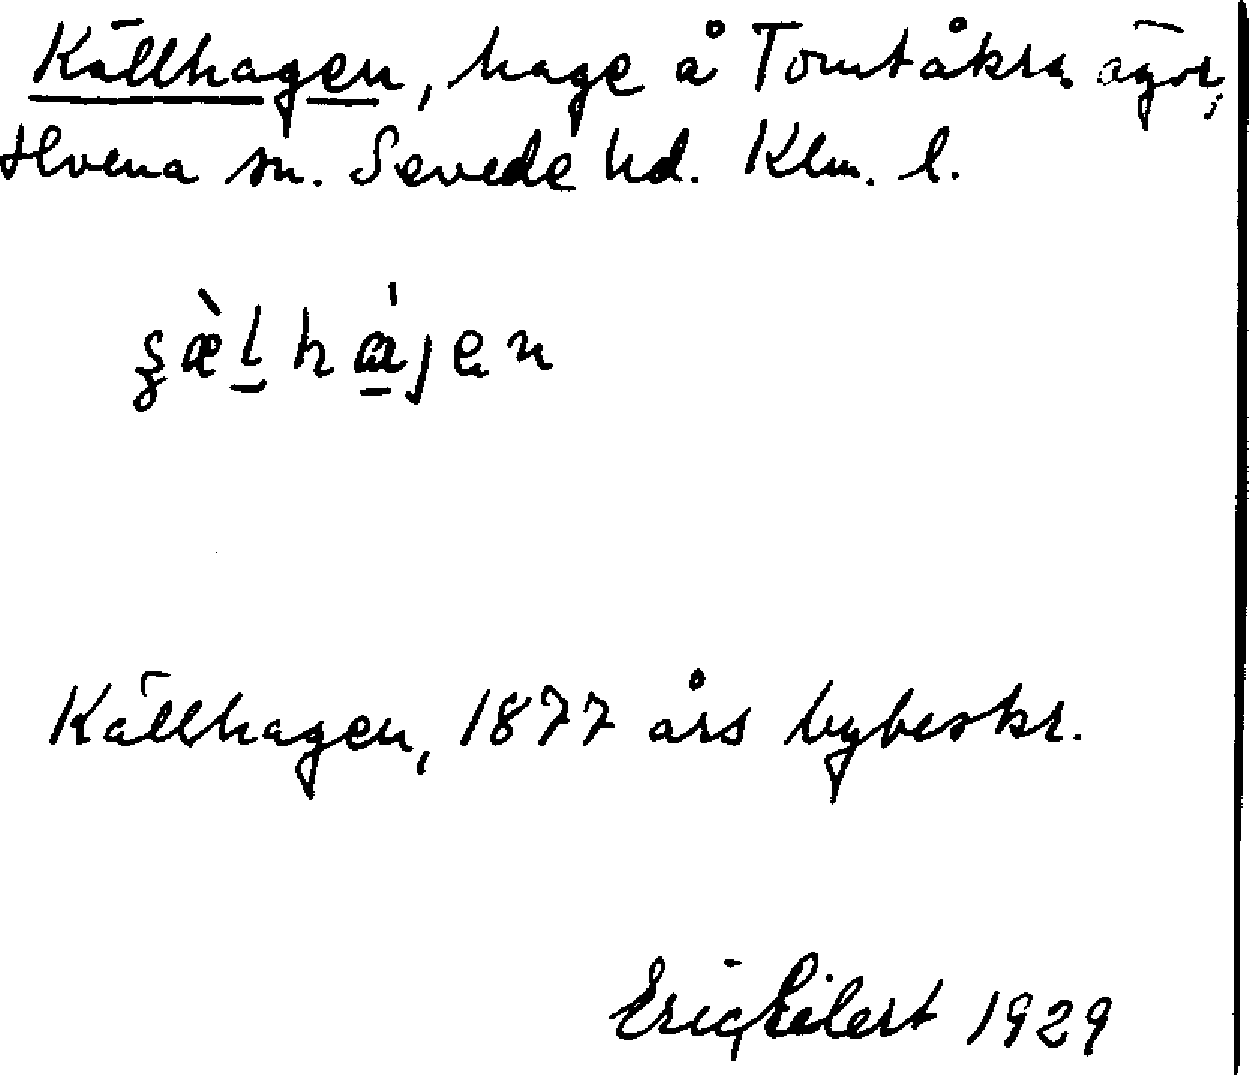 Källhagen, hage å Tomtåkra ägor,
Hvena sn. Sevede hd. Klm. l.
ʂæ̀l hájen
Källhagen, 1877 års bybeskr.
Eric Eilert 1929